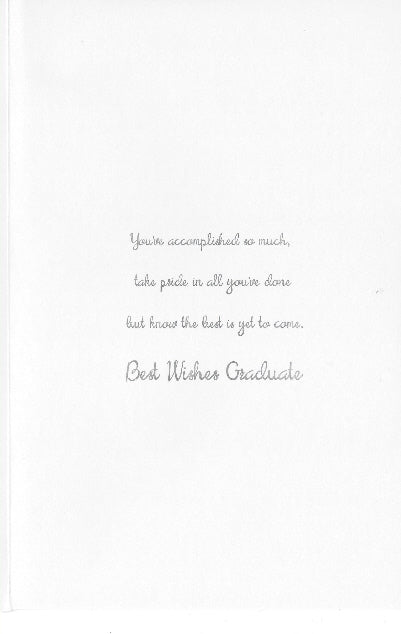 You've accomplished so much,
take pride in all you've done
but know the best is yet to come.
Best Wishes Graduate